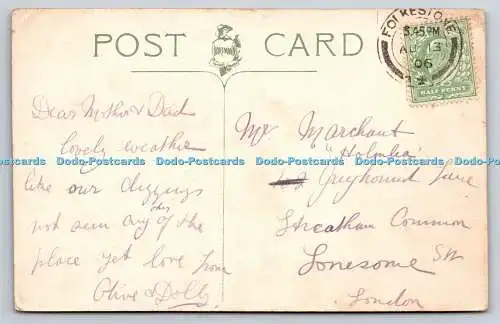 POST CARD
FOLKESTONE
5.45 PM
AU 3
06
HALF PENNY
Dear Mother & Dad
lovely weather
like our diggings
not seen any of the
place yet love from
Olive & Dolly
Mr Marchant
"Holmlea"
Greyhound Lane
Streatham Common
Lonesome SW
London
Dodo-Postcards Dodo-Postcards Dodo-Postcards Dodo-Postcards Dodo-Postcards Dodo-Postcards